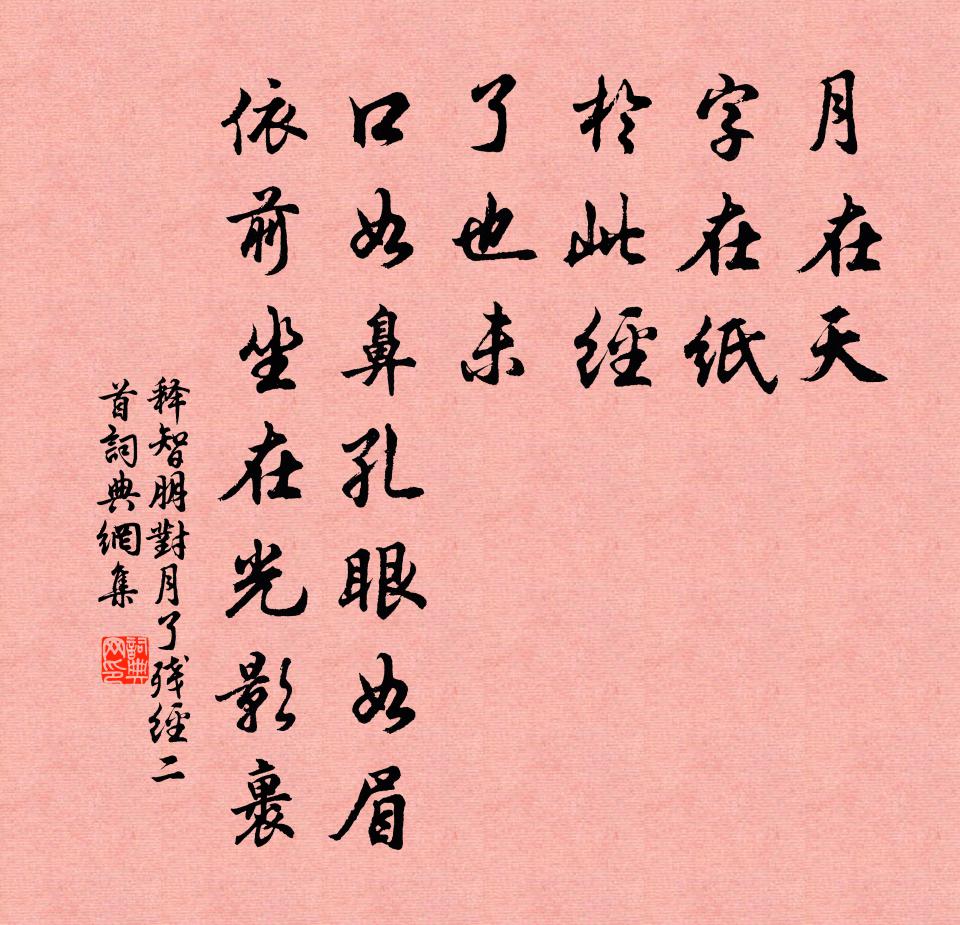 月在天
字在紙
於此經
了也未
口如鼻孔眼如眉
依前坐在光影裏
释智朋對月了残經二
首詞典網集
詞典
网印